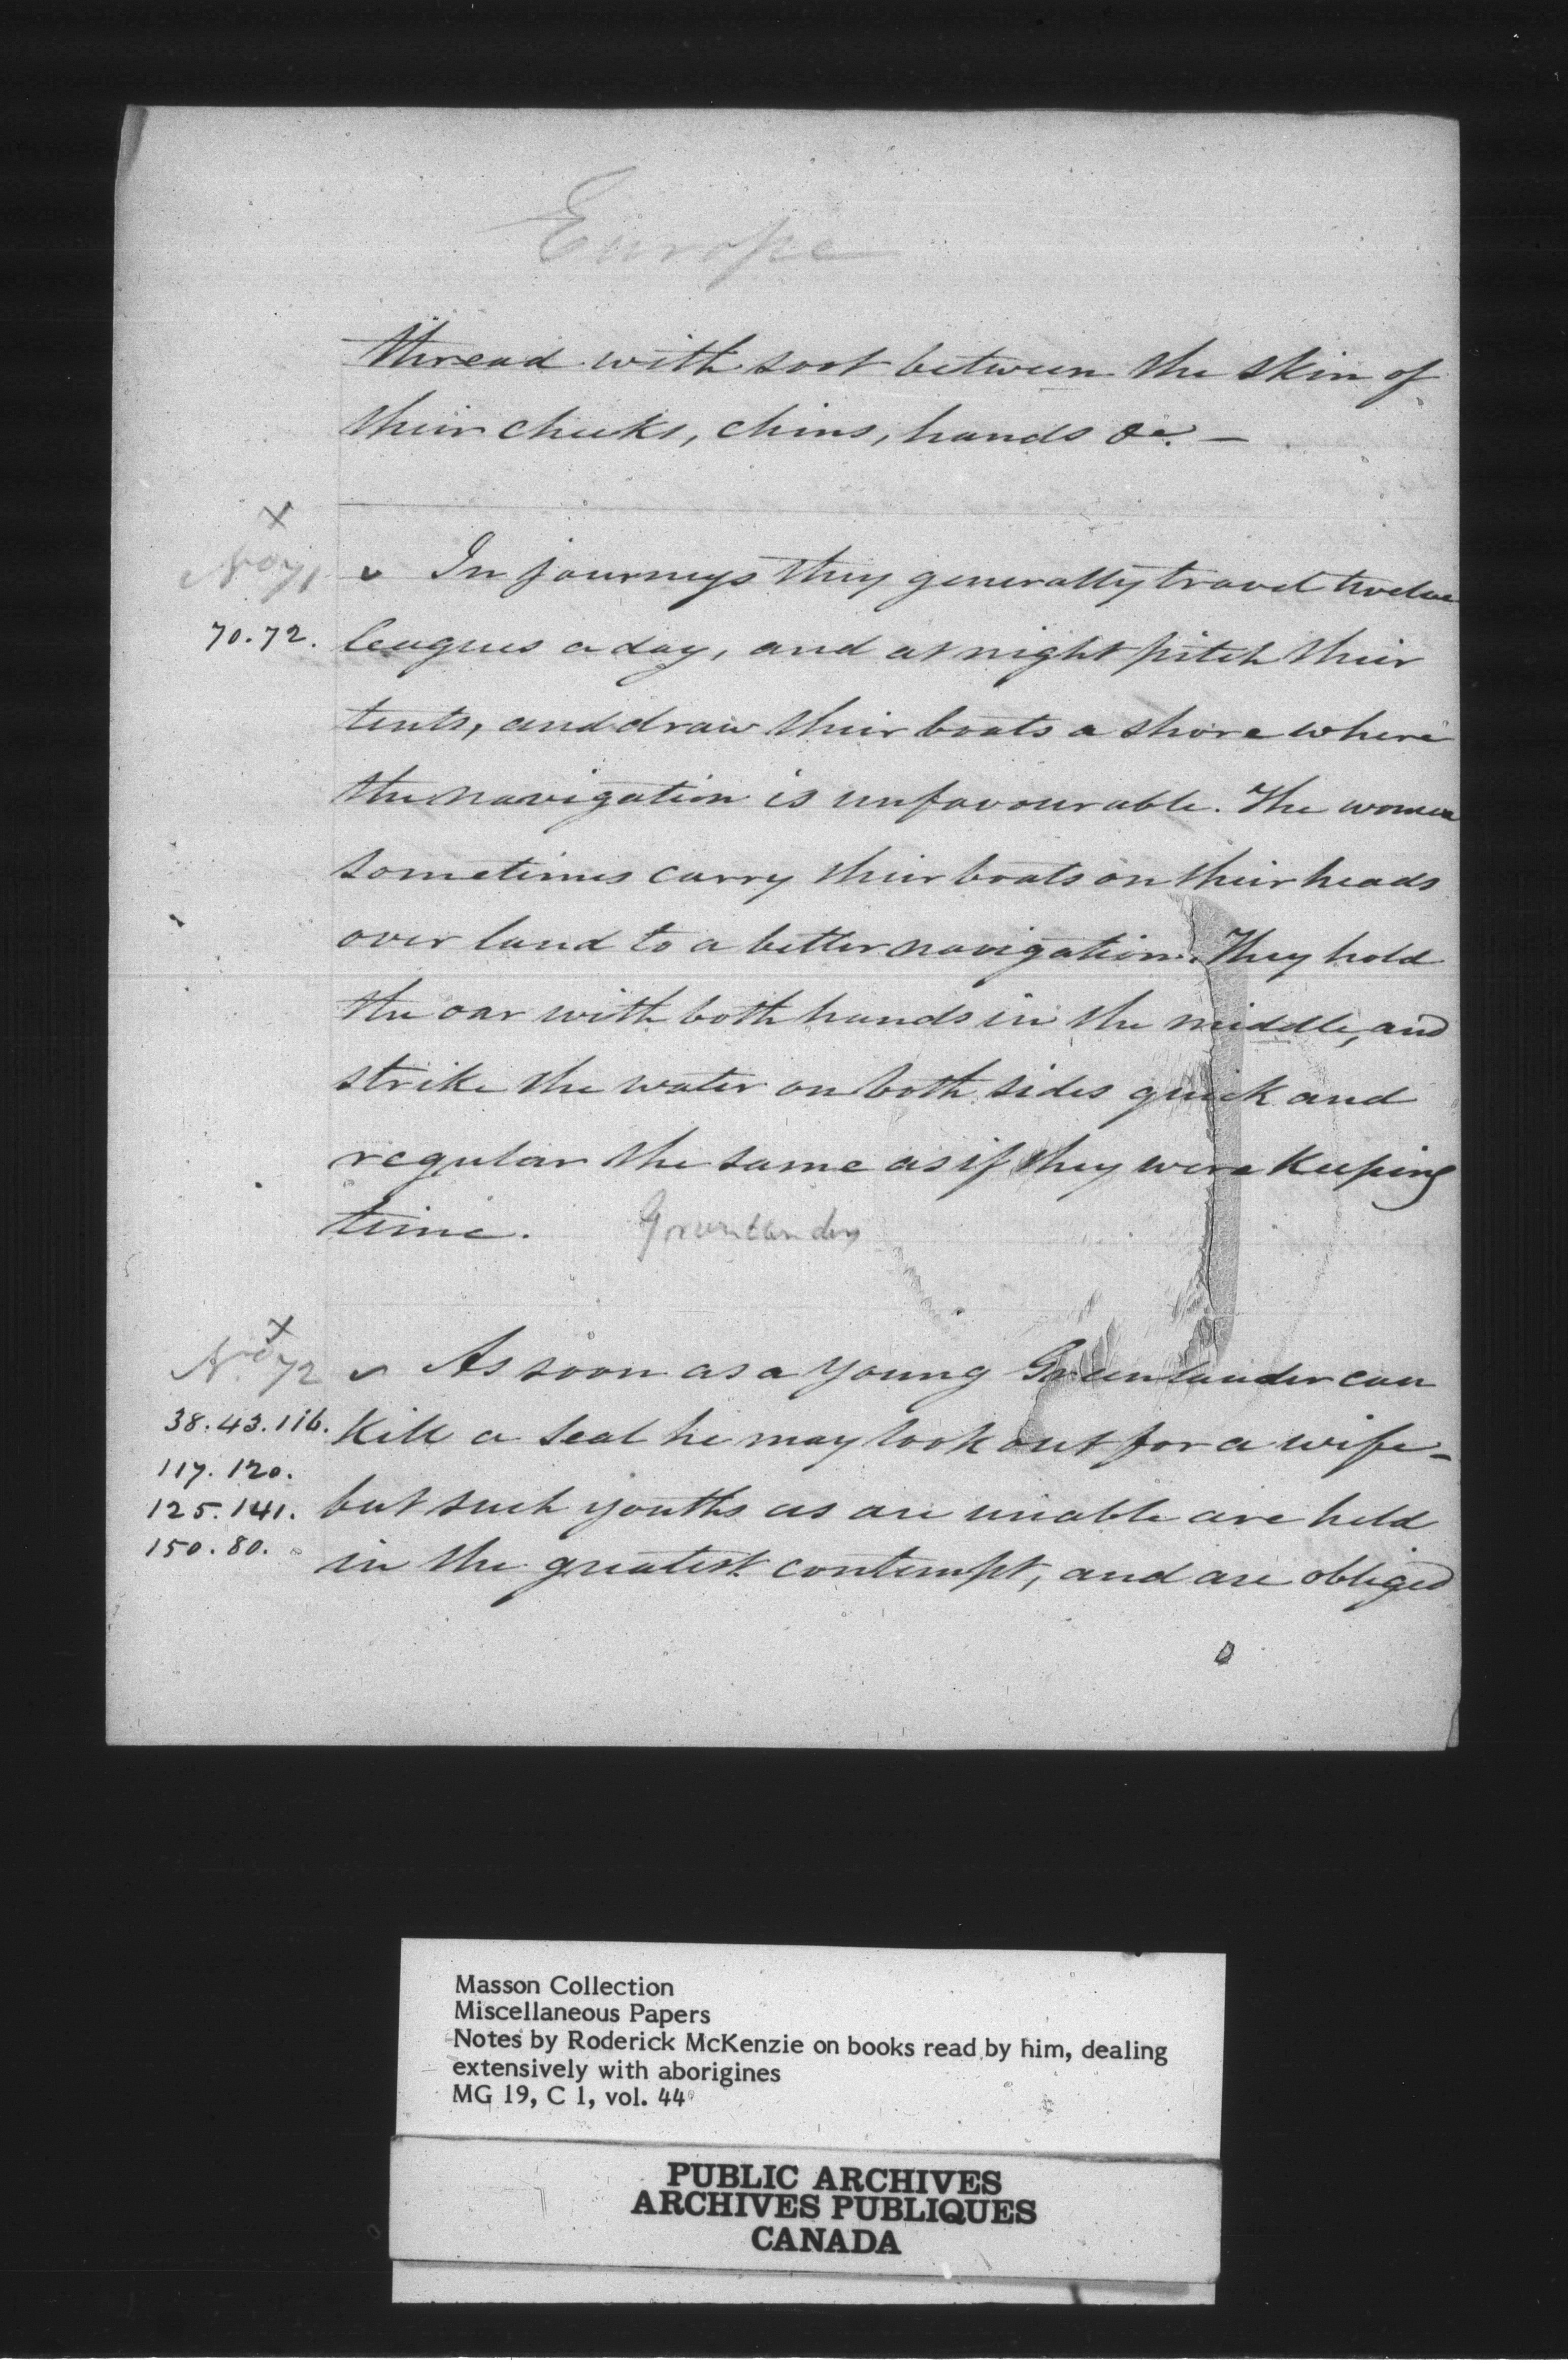 Europe
thread with soot between the skin of
their cheeks, chins, hands &c. —
x
No 71 ✓ In journeys they generally travel twelve
70.72. leagues a day, and at night pitch their
tents, and draw their boats a shore where
the navigation is unfavourable. The women
sometimes carry their boats on their heads
over land to a better navigation. They hold
the oar with both hands in the middle, and
strike the water on both sides quick and
regular the same as if they were keeping
time. Greenlanders
x
No 72 ✓ As soon as a young Greenlander can
38.43.116. kill a seal he may look out for a wife -
117.120.
125.141. but such youths as are unable are held
150.80. in the greatest contempt, and are obliged
Masson Collection
Miscellaneous Papers
Notes by Roderick McKenzie on books read by him, dealing
extensively with aborigines
MG 19, C 1, vol. 44
PUBLIC ARCHIVES
ARCHIVES PUBLIQUES
CANADA